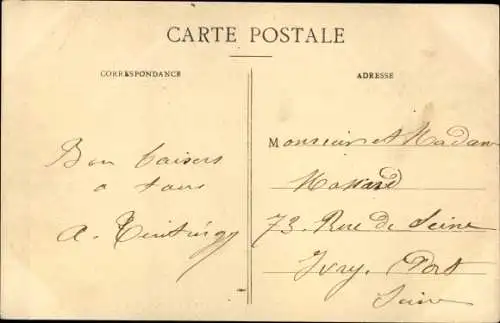 CARTE POSTALE
CORRESPONDANCE
ADRESSE
Bon baisers
a tous
A.
Monsieur et Madame
73. Rue de Seine
Ivry. Port
Seine